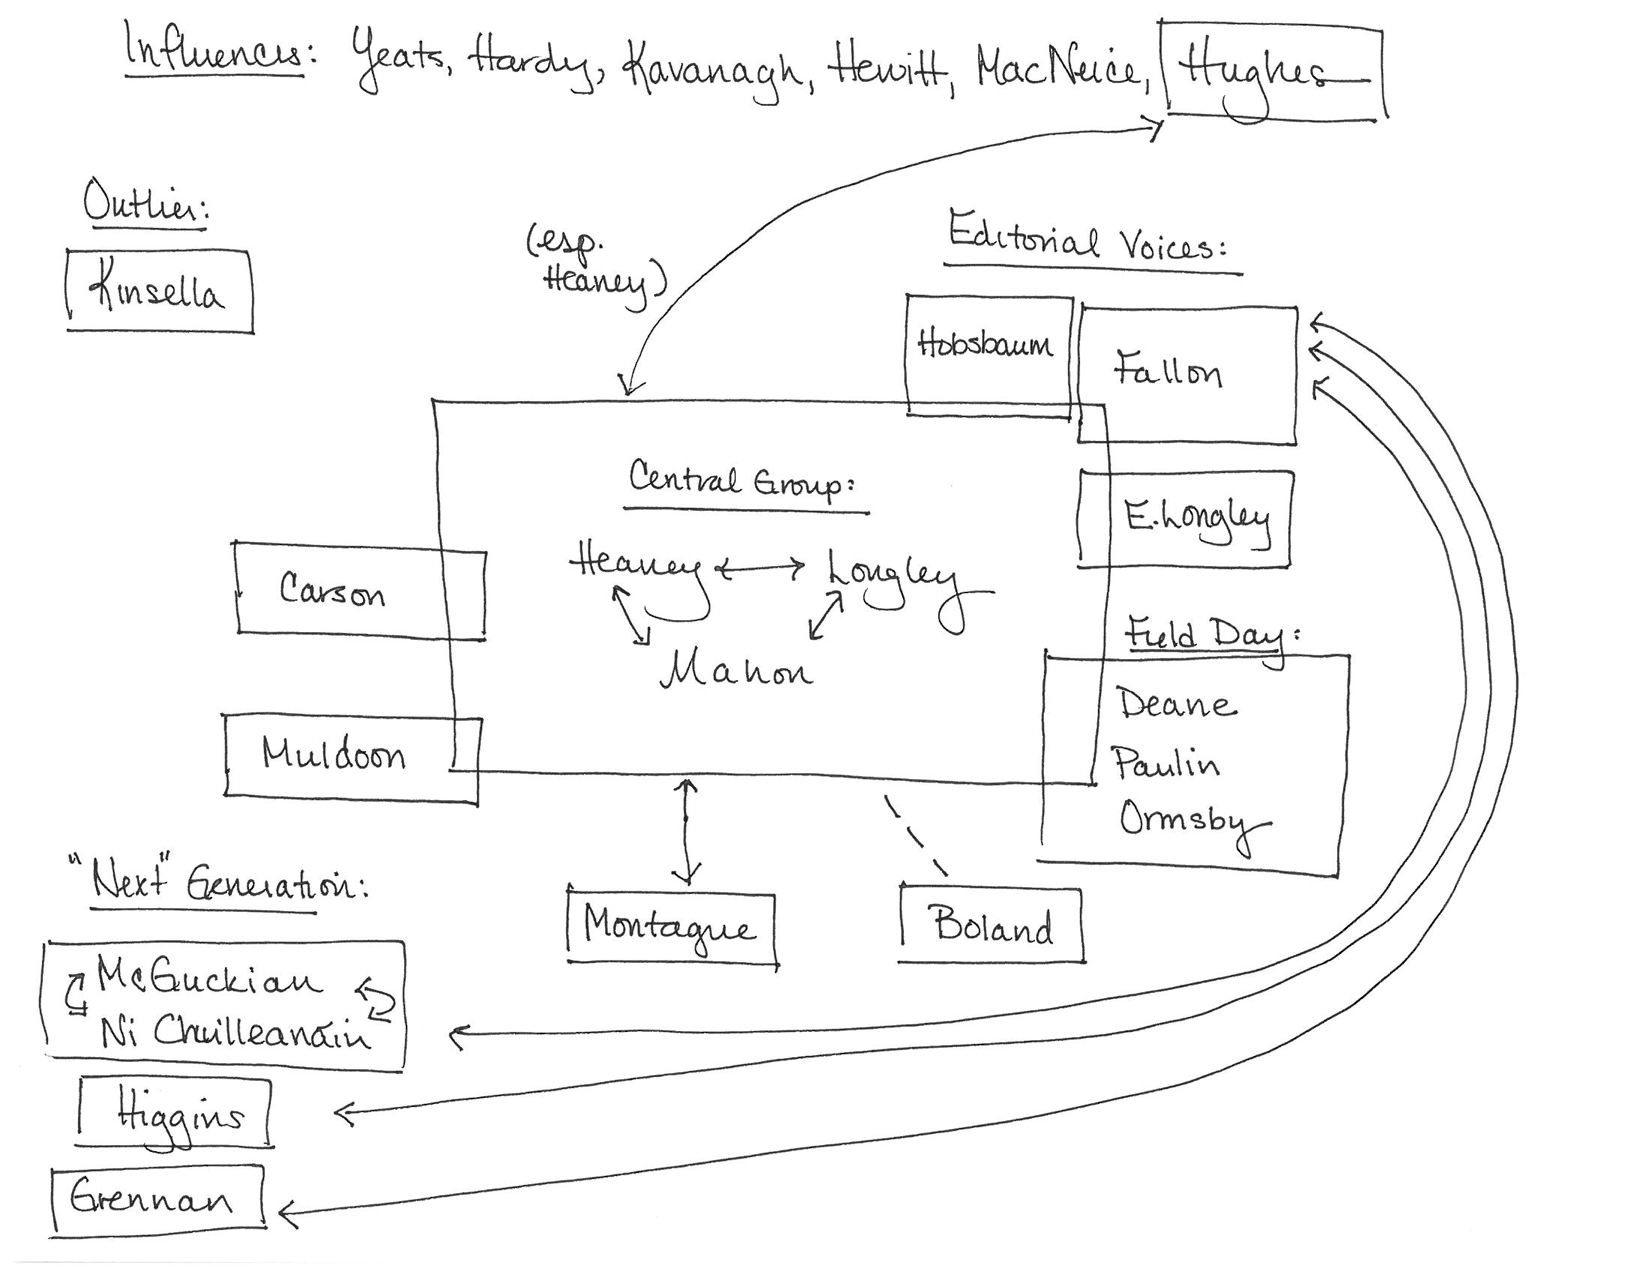 Influences: Yeats, Hardy, Kavanagh, Hewitt, MacNeice, Hughes
Outlier:
Kinsella
(esp.
Heaney)
Editorial Voices:
Hobsbaum
Fallon
E. Longley
Central Group:
Heaney Longley
Mahon
Carson
Muldoon
Field Day:
Deane
Paulin
Ormsby
Montague
Boland
"Next" Generation:
McGuckian
Ni Chuilleanáin
Higgins
Grennan